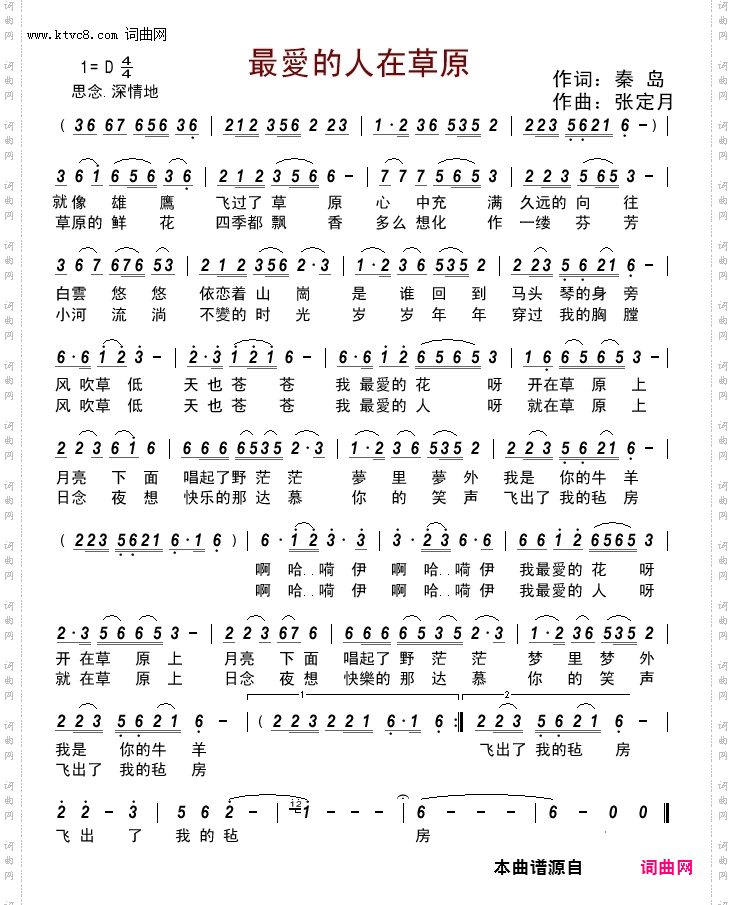 www.ktvc8.com 词曲网
最愛的人在草原
1= D 4/4
思念.深情地
作词：秦 岛
作曲：张定月
( 3 6 6 7 6 5 6 3 6 | 2 1 2 3 5 6 2 2 3 | 1 · 2 3 6 5 3 5 2 | 2 2 3 5 6 2 1 6 - ) |
3 6 1 6 5 6 3 6 | 2 1 2 3 5 6 6 - | 7 7 7 5 6 5 3 | 2 2 3 5 6 5 3 - |
就像 雄 鷹 飞过了 草 原 心 中充 满 久远的 向 往
草原的 鲜 花 四季都 飘 香 多么 想化 作 一缕 芬 芳
3 6 7 6 7 6 5 3 | 2 1 2 3 5 6 2 · 3 | 1 · 2 3 6 5 3 5 2 | 2 2 3 5 6 2 1 6 - |
白雲 悠 悠 依恋着 山 崗 是 谁 回 到 马头 琴的身 旁
小河 流 淌 不變的 时 光 岁 岁 年 年 穿过 我的胸 膛
6 · 6 1 2 3 - | 2 · 3 1 2 1 6 - | 6 · 6 1 2 6 5 6 5 3 | 1 6 6 5 6 5 3 - |
风 吹草 低 天 也 苍 苍 我 最愛的 花 呀 开在草 原 上
风 吹草 低 天 也 苍 苍 我 最愛的 人 呀 就在草 原 上
2 2 3 6 1 6 | 6 6 6 6 5 3 5 2 · 3 | 1 · 2 3 6 5 3 5 2 | 2 2 3 5 6 2 1 6 - |
月亮 下 面 唱起了野 茫 茫 夢 里 夢 外 我是 你的牛 羊
日念 夜 想 快乐的那 达 慕 你 的 笑 声 飞出了 我的毡 房
( 2 2 3 5 6 2 1 6 · 1 6 ) | 6 · 1 2 3 · 3 | 3 · 2 3 6 · 6 | 6 6 1 2 6 5 6 5 3 |
啊 哈..嗬 伊 啊 哈..嗬伊 我最愛的 花 呀
啊 哈..嗬 伊 啊 哈..嗬伊 我最愛的 人 呀
2 · 3 5 6 6 5 3 - | 2 2 3 6 7 6 | 6 6 6 6 5 3 5 2 · 3 | 1 · 2 3 6 5 3 5 2 |
开 在草 原 上 月亮 下 面 唱起了 野 茫 茫 梦 里 梦 外
就 在草 原 上 日念 夜 想 快樂的 那 达 慕 你 的 笑 声
1 2
2 2 3 5 6 2 1 6 - | ( 2 2 3 2 2 1 6 · 1 6 :‖ 2 2 3 5 6 2 1 6 - |
我是 你的牛 羊 飞出了 我的毡 房
飞出了 我的毡 房
2 2 - 3 | 5 6 2 - | 12 1 - - - | 6 - - - | 6 - 0 0 ‖
飞 出 了 我 的 毡 房
本曲谱源自 词曲网